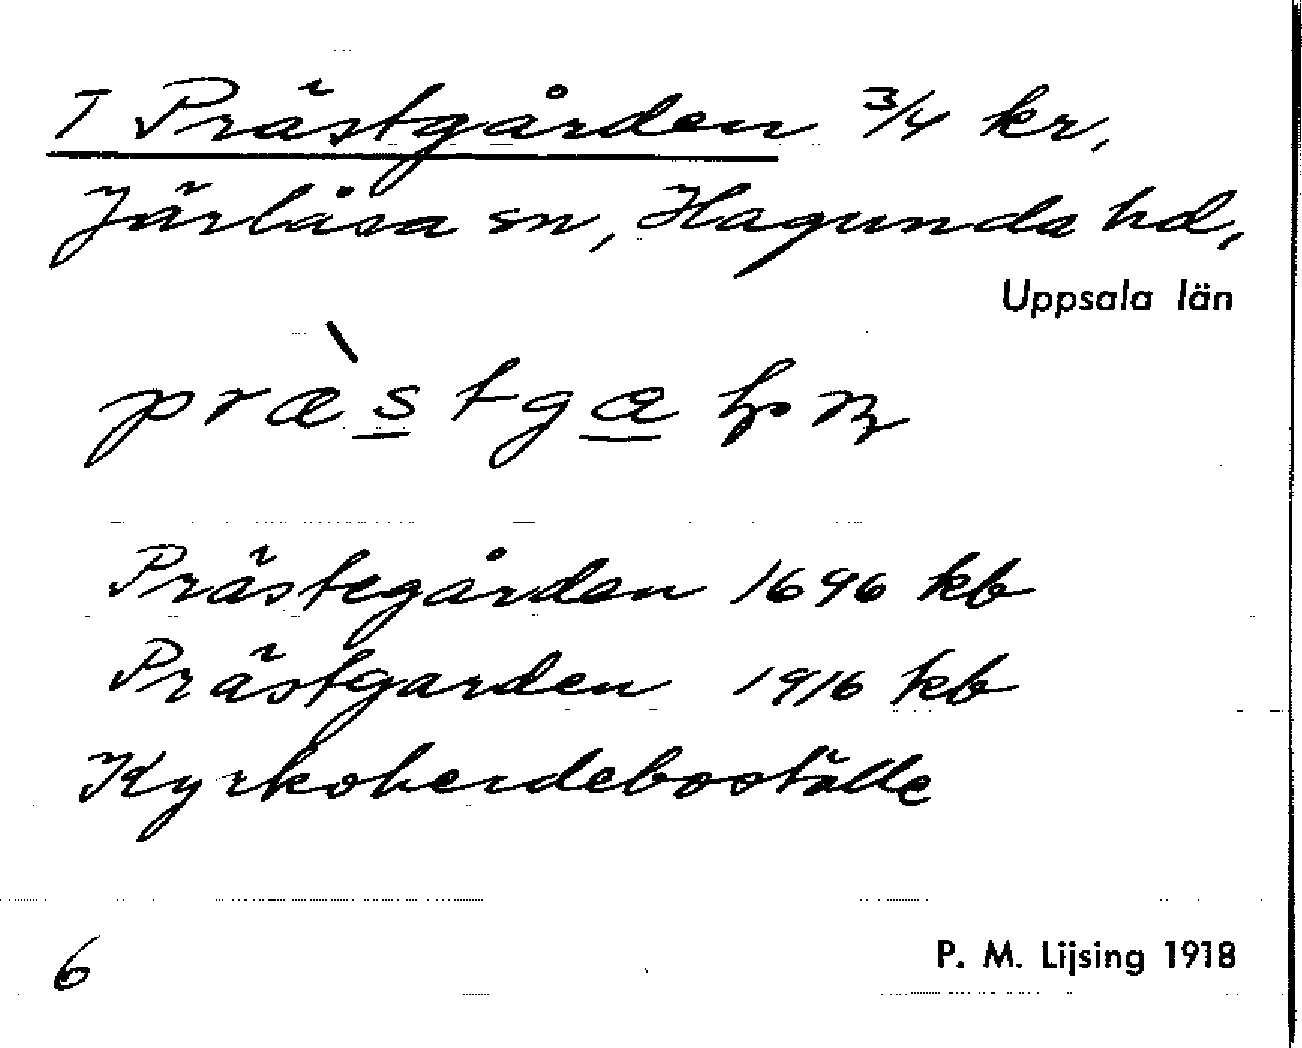 T Prästgården 3/4 kr,
Järlåsa sn, Hagunda hd,
Uppsala län
Prästegården 1696 kb
Prästgarden 1916 kb
Kyrkoherdeboställe
6
P. M. Lijsing 1918